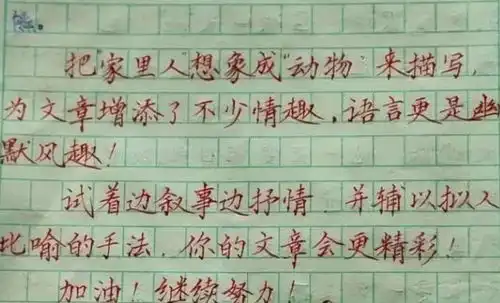 熊。
把"家里人"想象成"动物"来描写,
为文章增添了不少情趣,语言更是幽
默风趣!
试着边叙事边抒情,并辅以拟人
比喻的手法,你的文章会更精彩!
加油!继续努力!